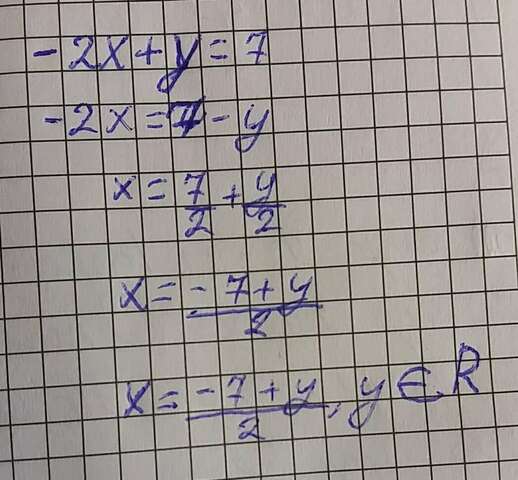 -2x+y=7
-2x=7-y
x=7/2+y/2
x=-7+y/2
x=-7+y/2, y∈R